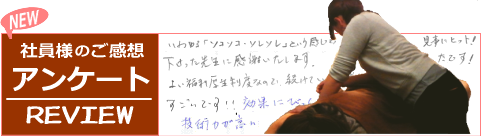 NEW
社員様のご感想
アンケート
REVIEW
いわゆる「ソコソコ・ソレソレ」という感じの 見事にヒット!
下さった先生に感謝いたします。 たです!
よい福利厚生制度なので、続けてい
すごいです!! 効果にびっ
技術力が高い